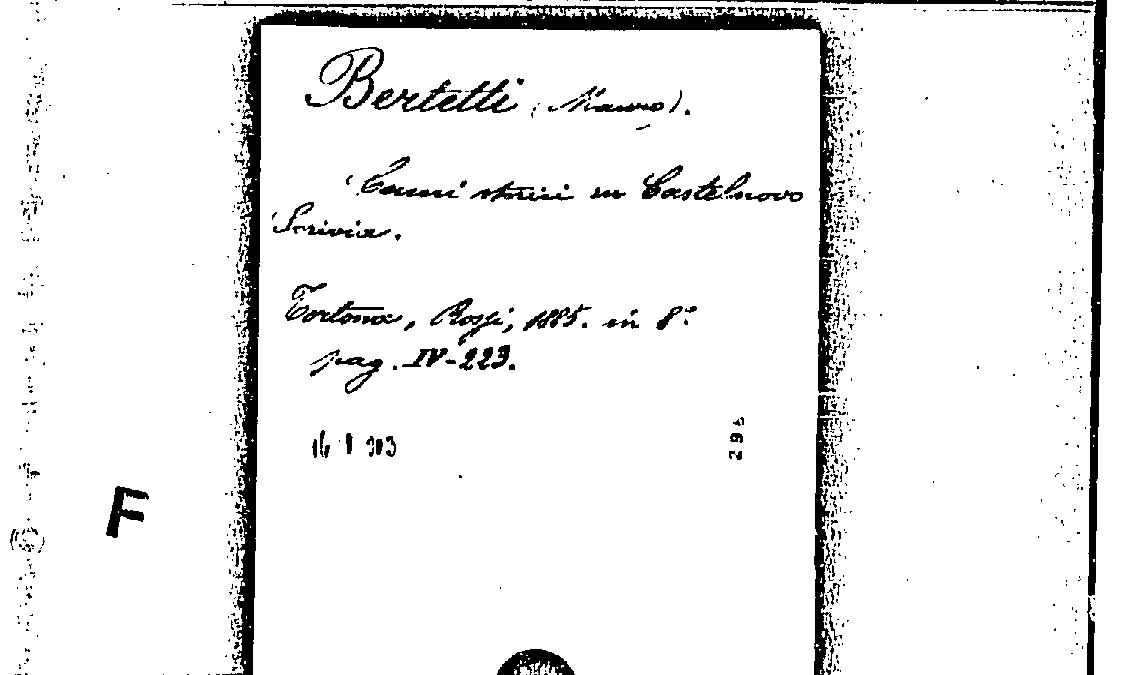 Bertetti (Mauro).
Cenni storici su Castelnovo
Scrivia.
Tortona, Rossi, 1885. in 8°
pag. IV-223.
16 1 903
294
F